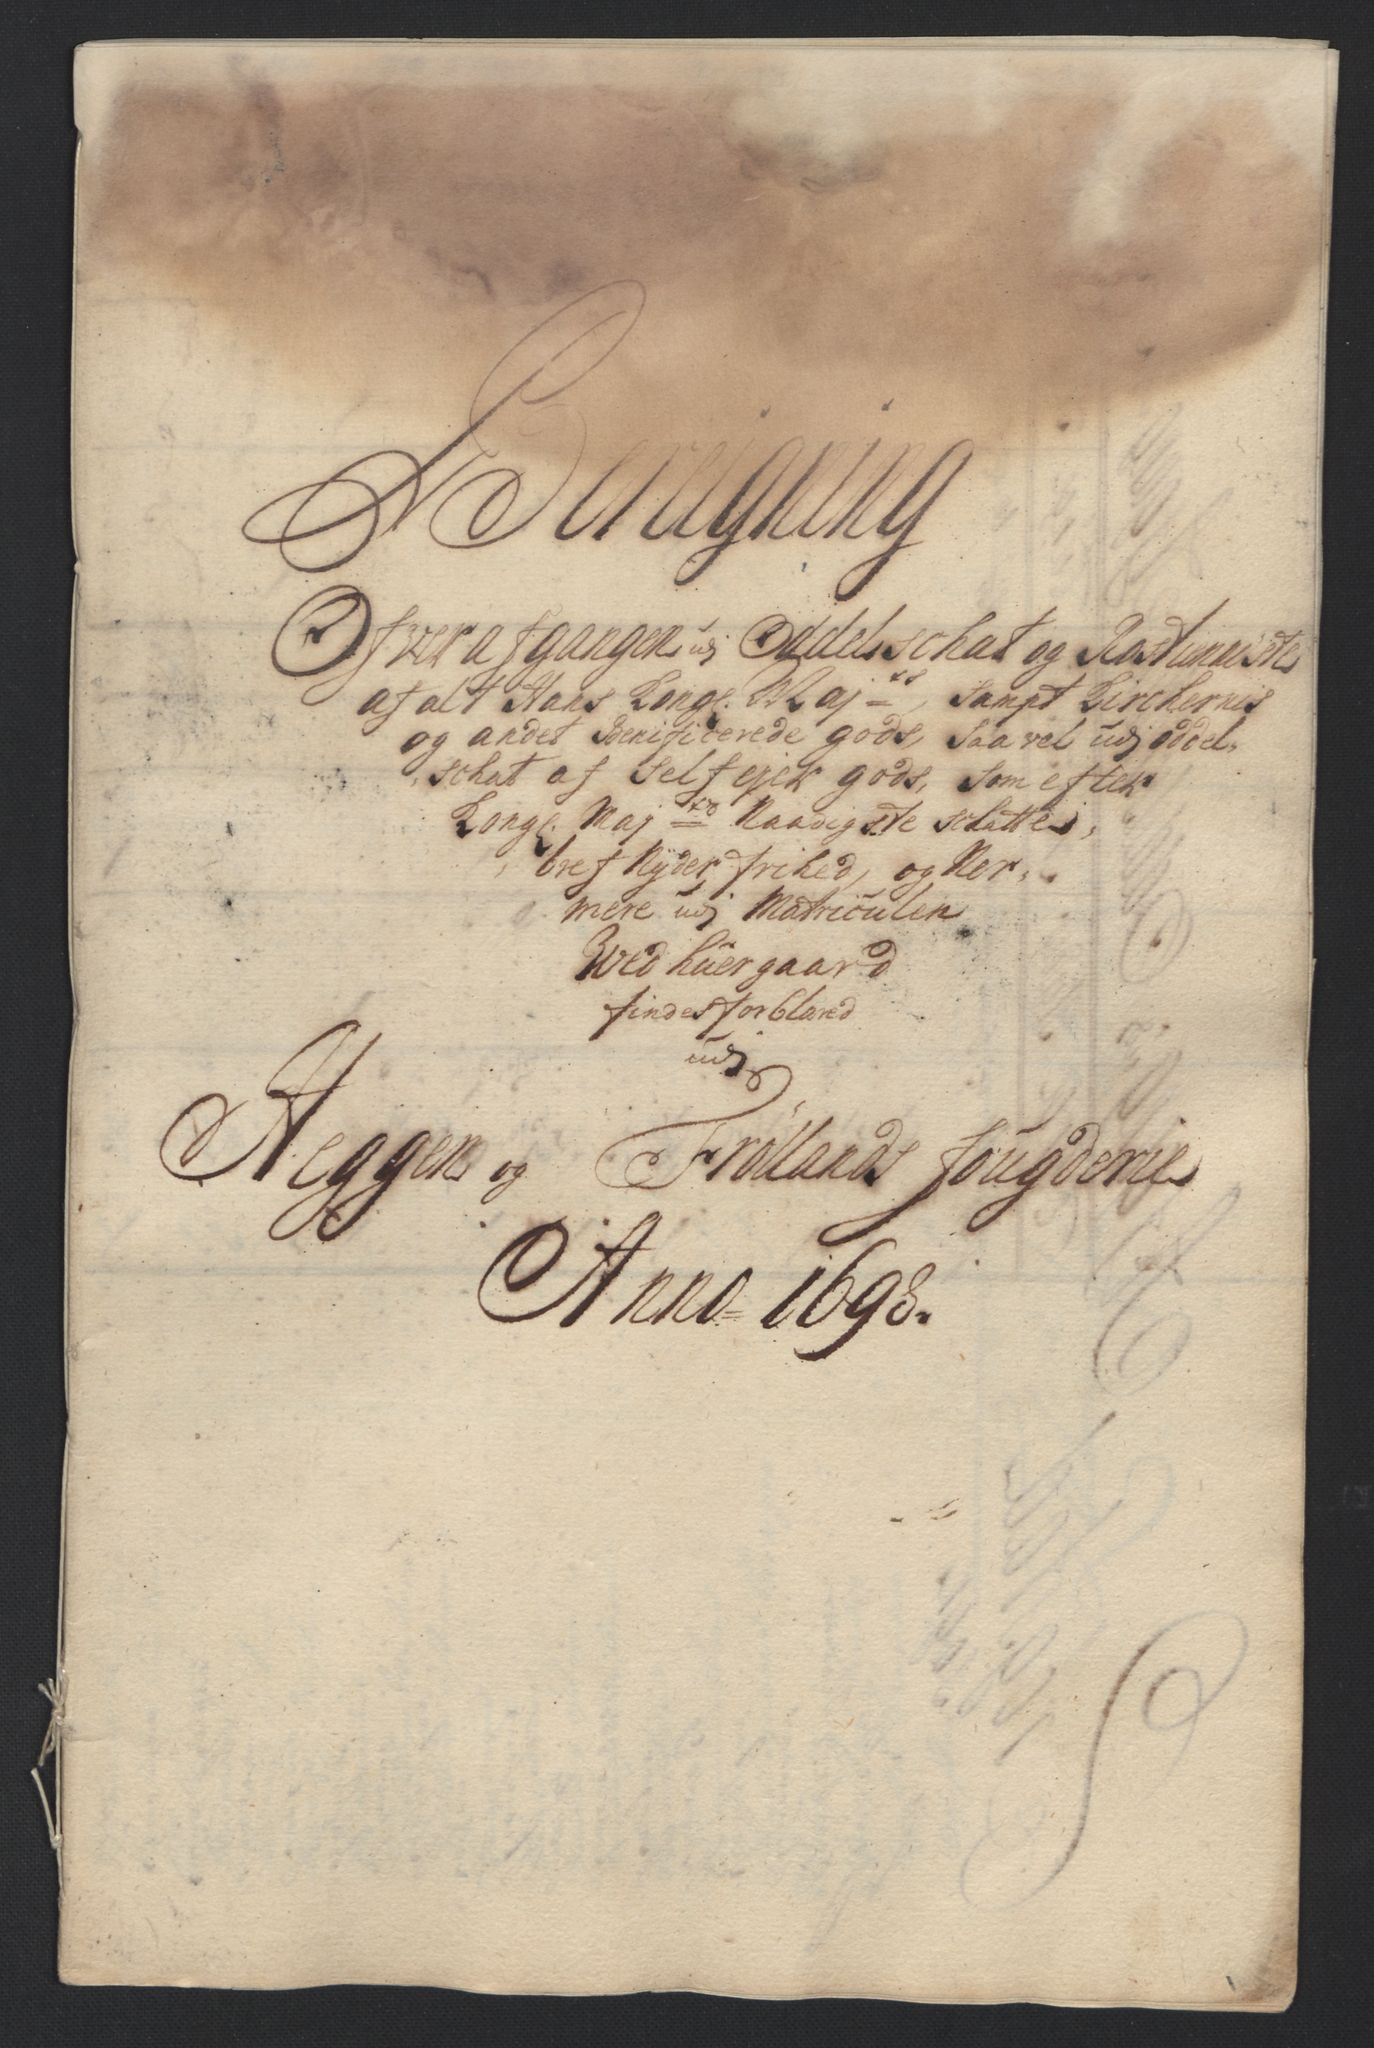 Bereigning
Ofver afgangen udj Oddelsschat og Rostienniste
af alt Hans Kongl. Maj=ts, sampt Kirchernis
og andet Benificerede gods, saavel udj oddel,
schat af Selfejer gods, som efter
Kongl. Maj=ts Naadigste schatte,
bref Nyder frihed, og Ner,
mere udj Matriculen
Wed huer gaard
findes forklared
udj
Heggen og Frøllands fougderie
Anno= 1698.